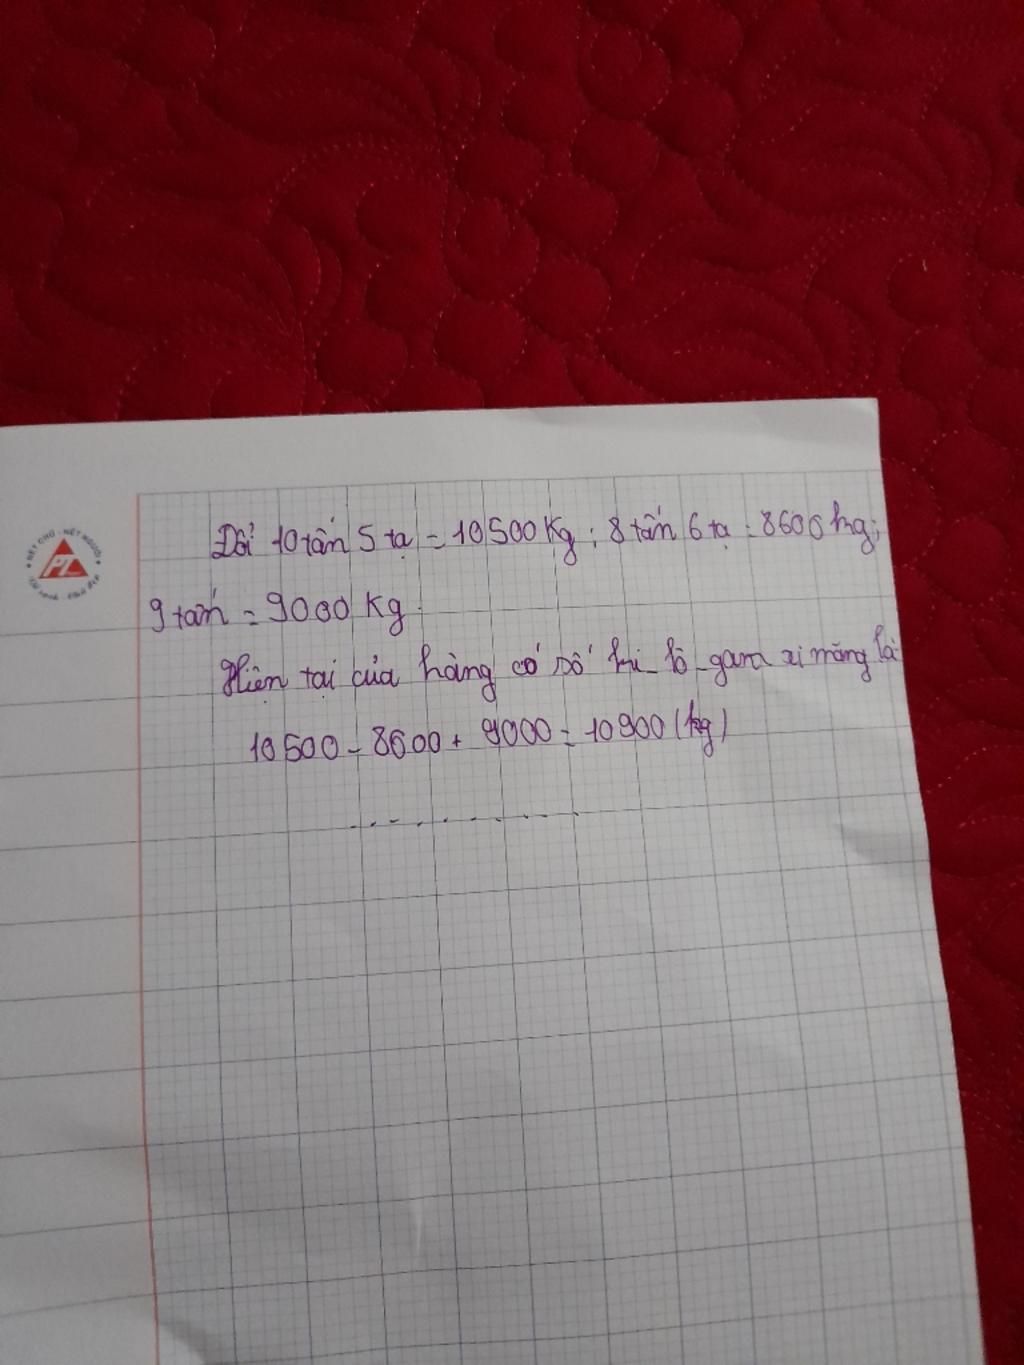 NÉT CHỮ - NẾT NGƯỜI
PL
Đổi 10 tấn 5 tạ = 10 500 kg ; 8 tấn 6 tạ = 8600 kg ;
9 tấn = 9000 kg
Hiện tại cửa hàng có số ki_lô_gam xi măng là
10 500 - 8600 + 9000 = 10 900 (kg)